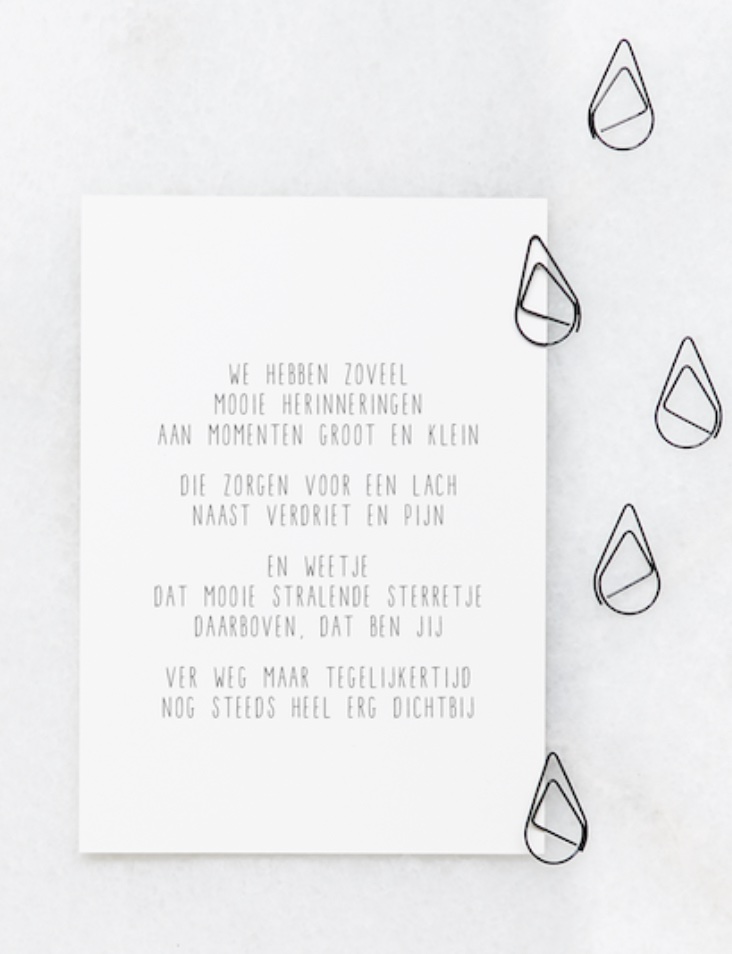 WE HEBBEN ZOVEEL
MOOIE HERINNERINGEN
AAN MOMENTEN GROOT EN KLEIN
DIE ZORGEN VOOR EEN LACH
NAAST VERDRIET EN PIJN
EN WEETJE
DAT MOOIE STRALENDE STERRETJE
DAARBOVEN, DAT BEN JIJ
VER WEG MAAR TEGELIJKERTIJD
NOG STEEDS HEEL ERG DICHTBIJ